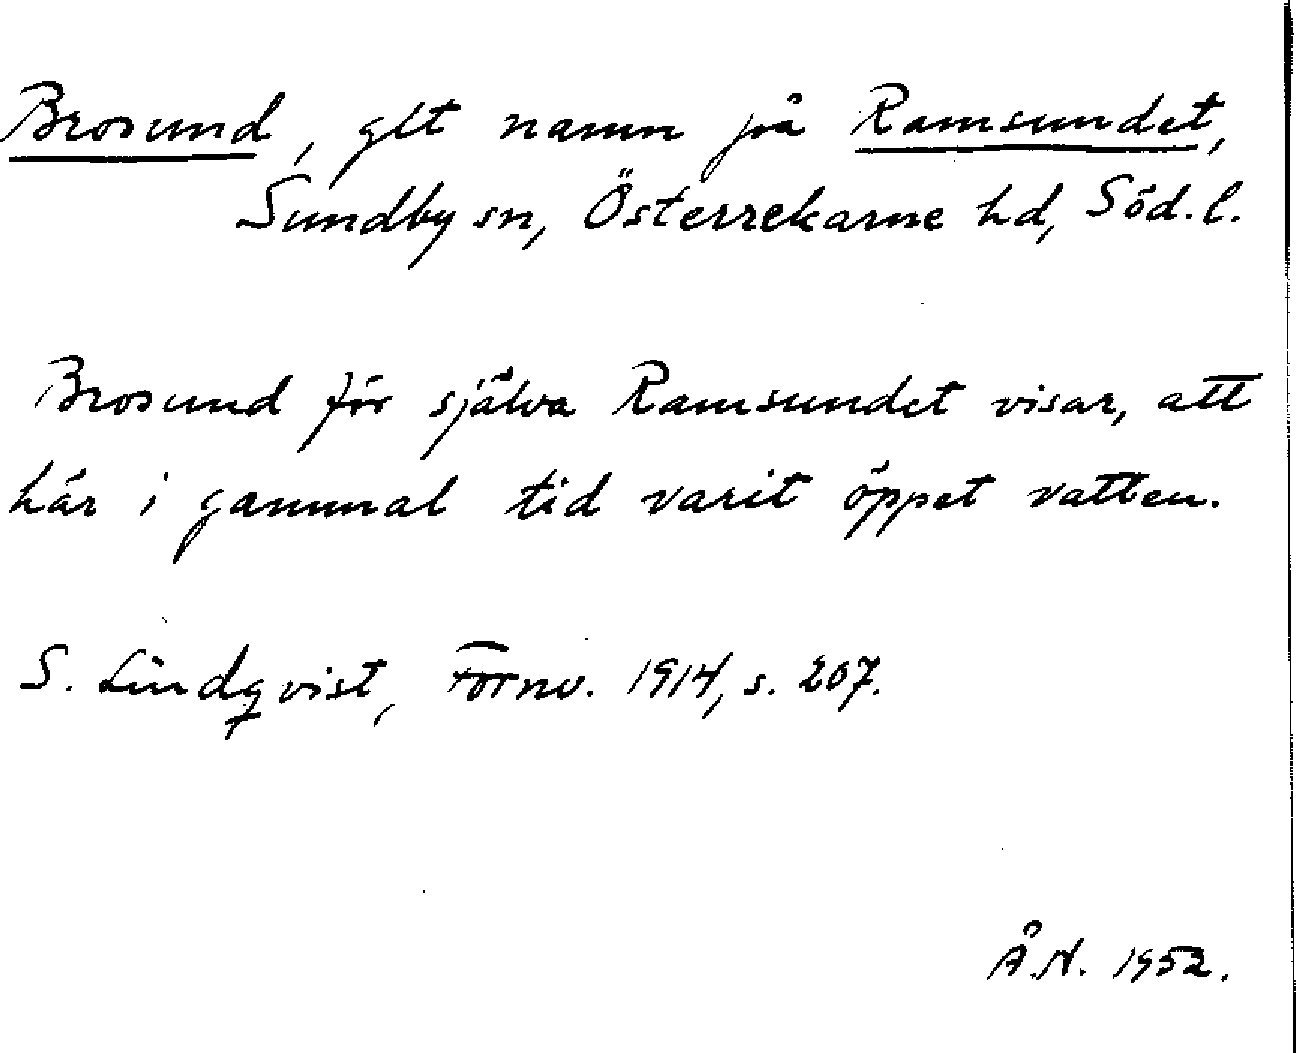 Brosund, glt namn på Ramsundet,
Sundby sn, Österrekarne hd, Söd.l.
Brosund för själva Ramsundet visar, att
här i gammal tid varit öppet vatten.
S. Lindqvist, Fornv. 1914, s. 207.
Å.N. 1952.